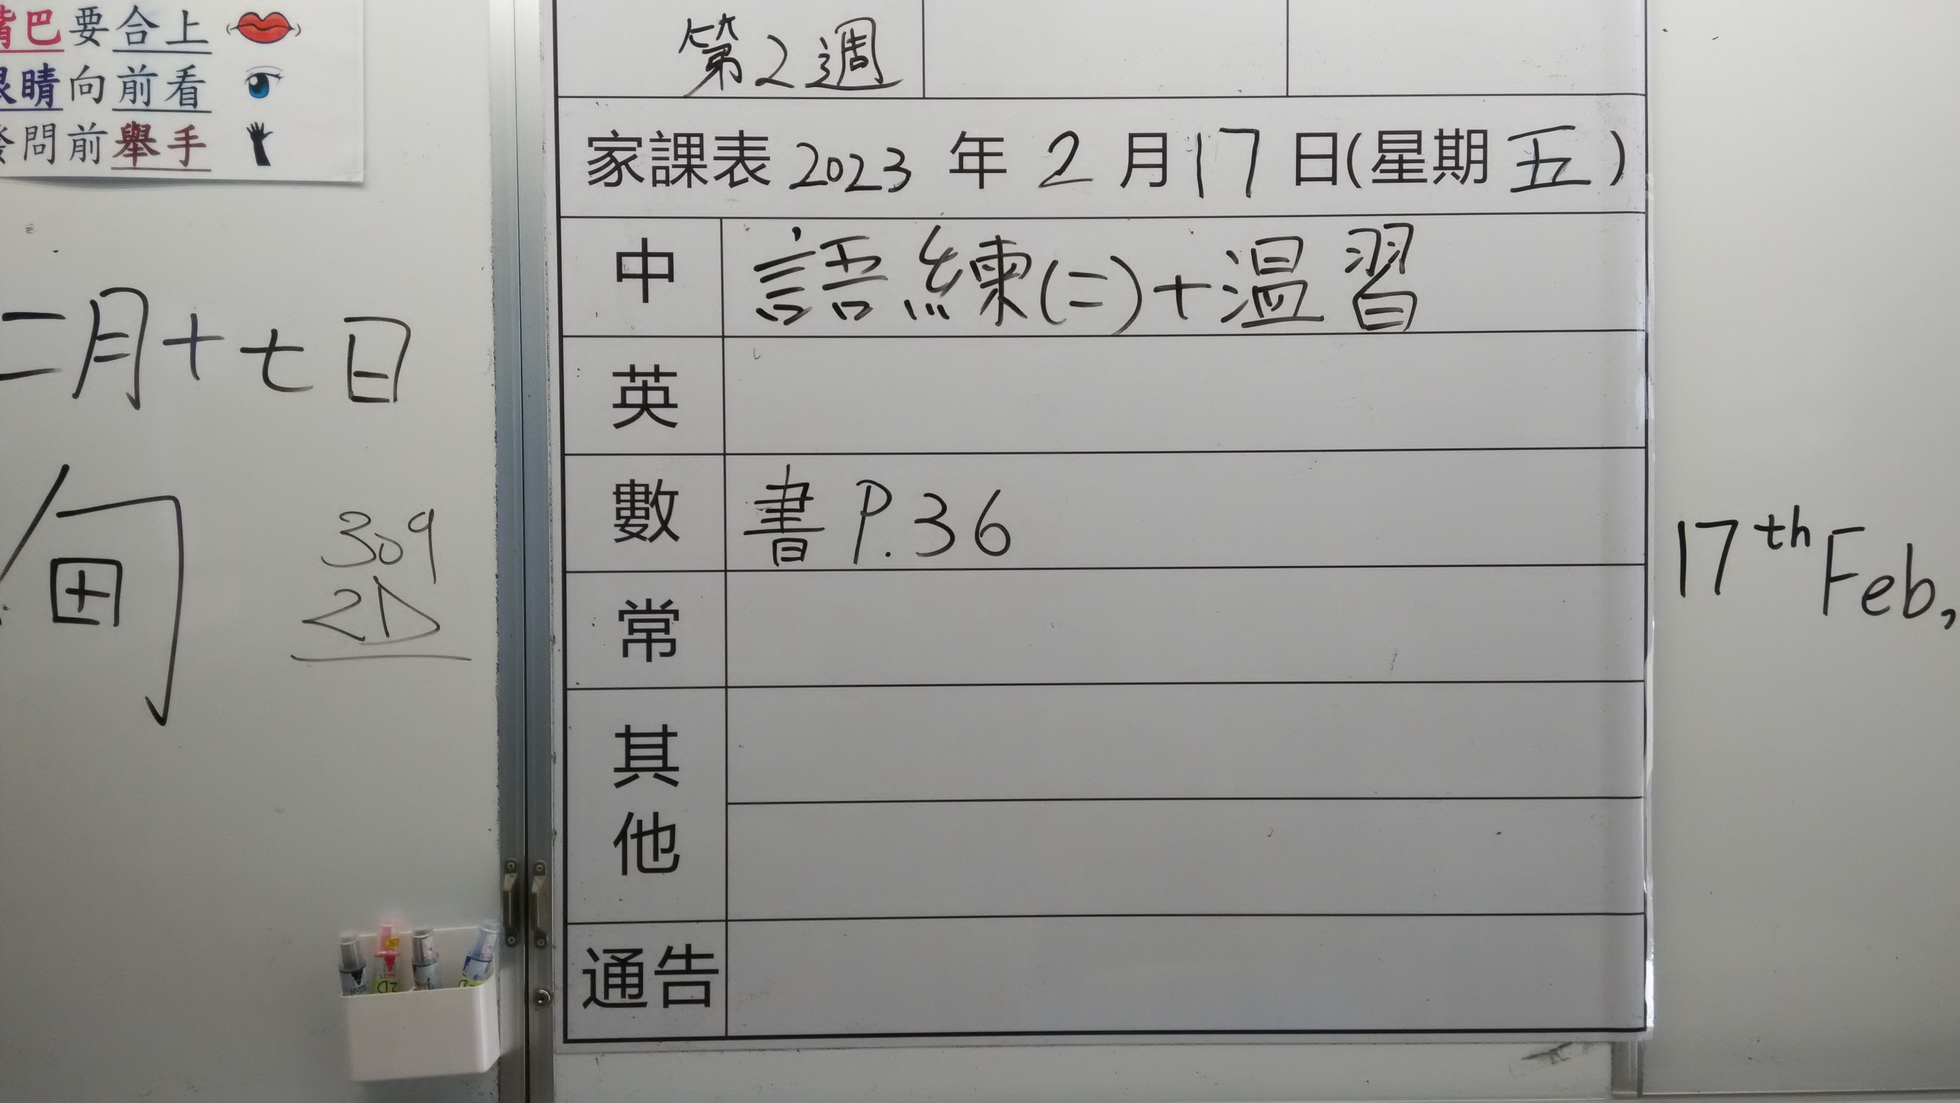 嘴巴要合上
眼睛向前看
發問前舉手
二月十七日
309
2D
第2週
家課表 2023 年 2 月 17 日(星期 五)
中 語練(二)+温習
英
數 書 P.36
常
其他
通告
17th Feb,